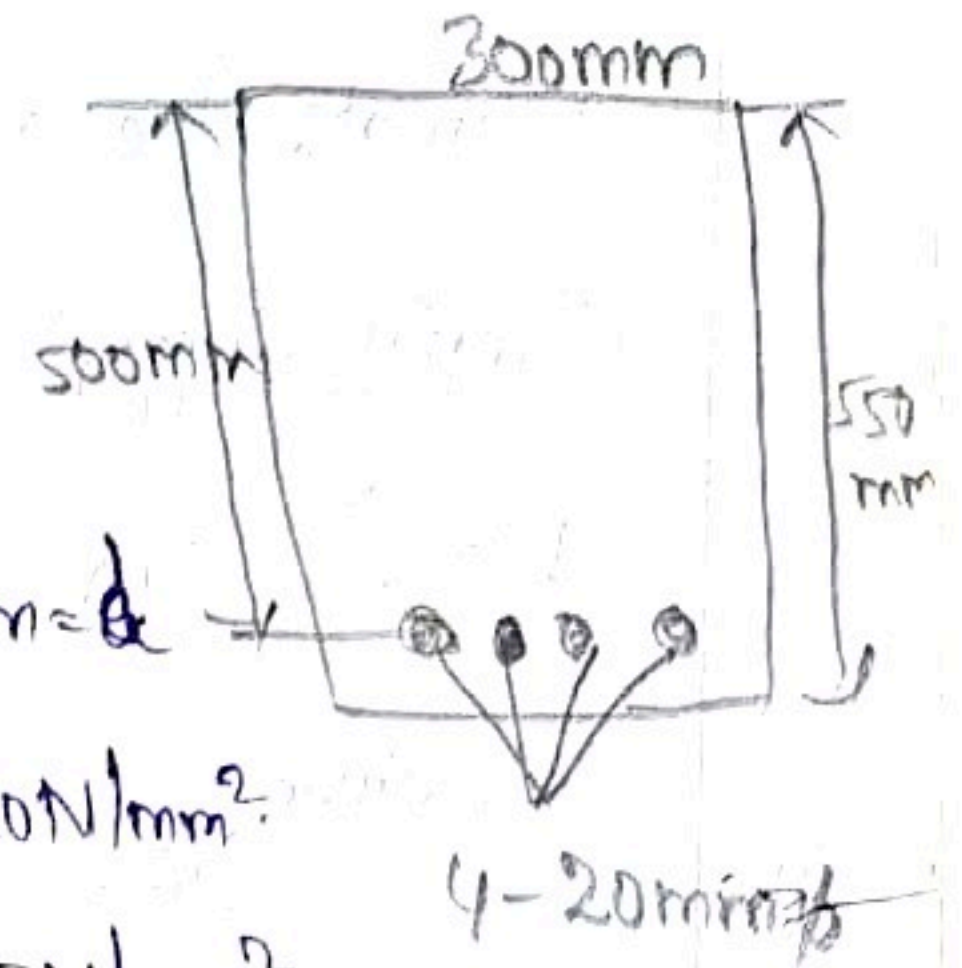 300mm
500mm
550
mm
n=d
0N/mm².
4-20mmϕ
N/mm²